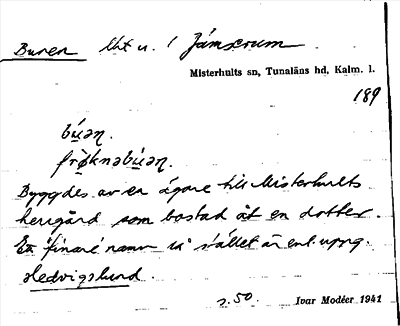 Buren lht u. / Jámserum
Misterhults sn, Tunaläns hd, Kalm. l.
189
bú̱ən.
frø̀knəbú̱ən.
Byggdes av en ägare till Misterhults
herrgård som bostad åt en dotter.
En "finare namn på stället är enl. uppg.
Hedvigslund.
s. 50. Ivar Modéer 1941